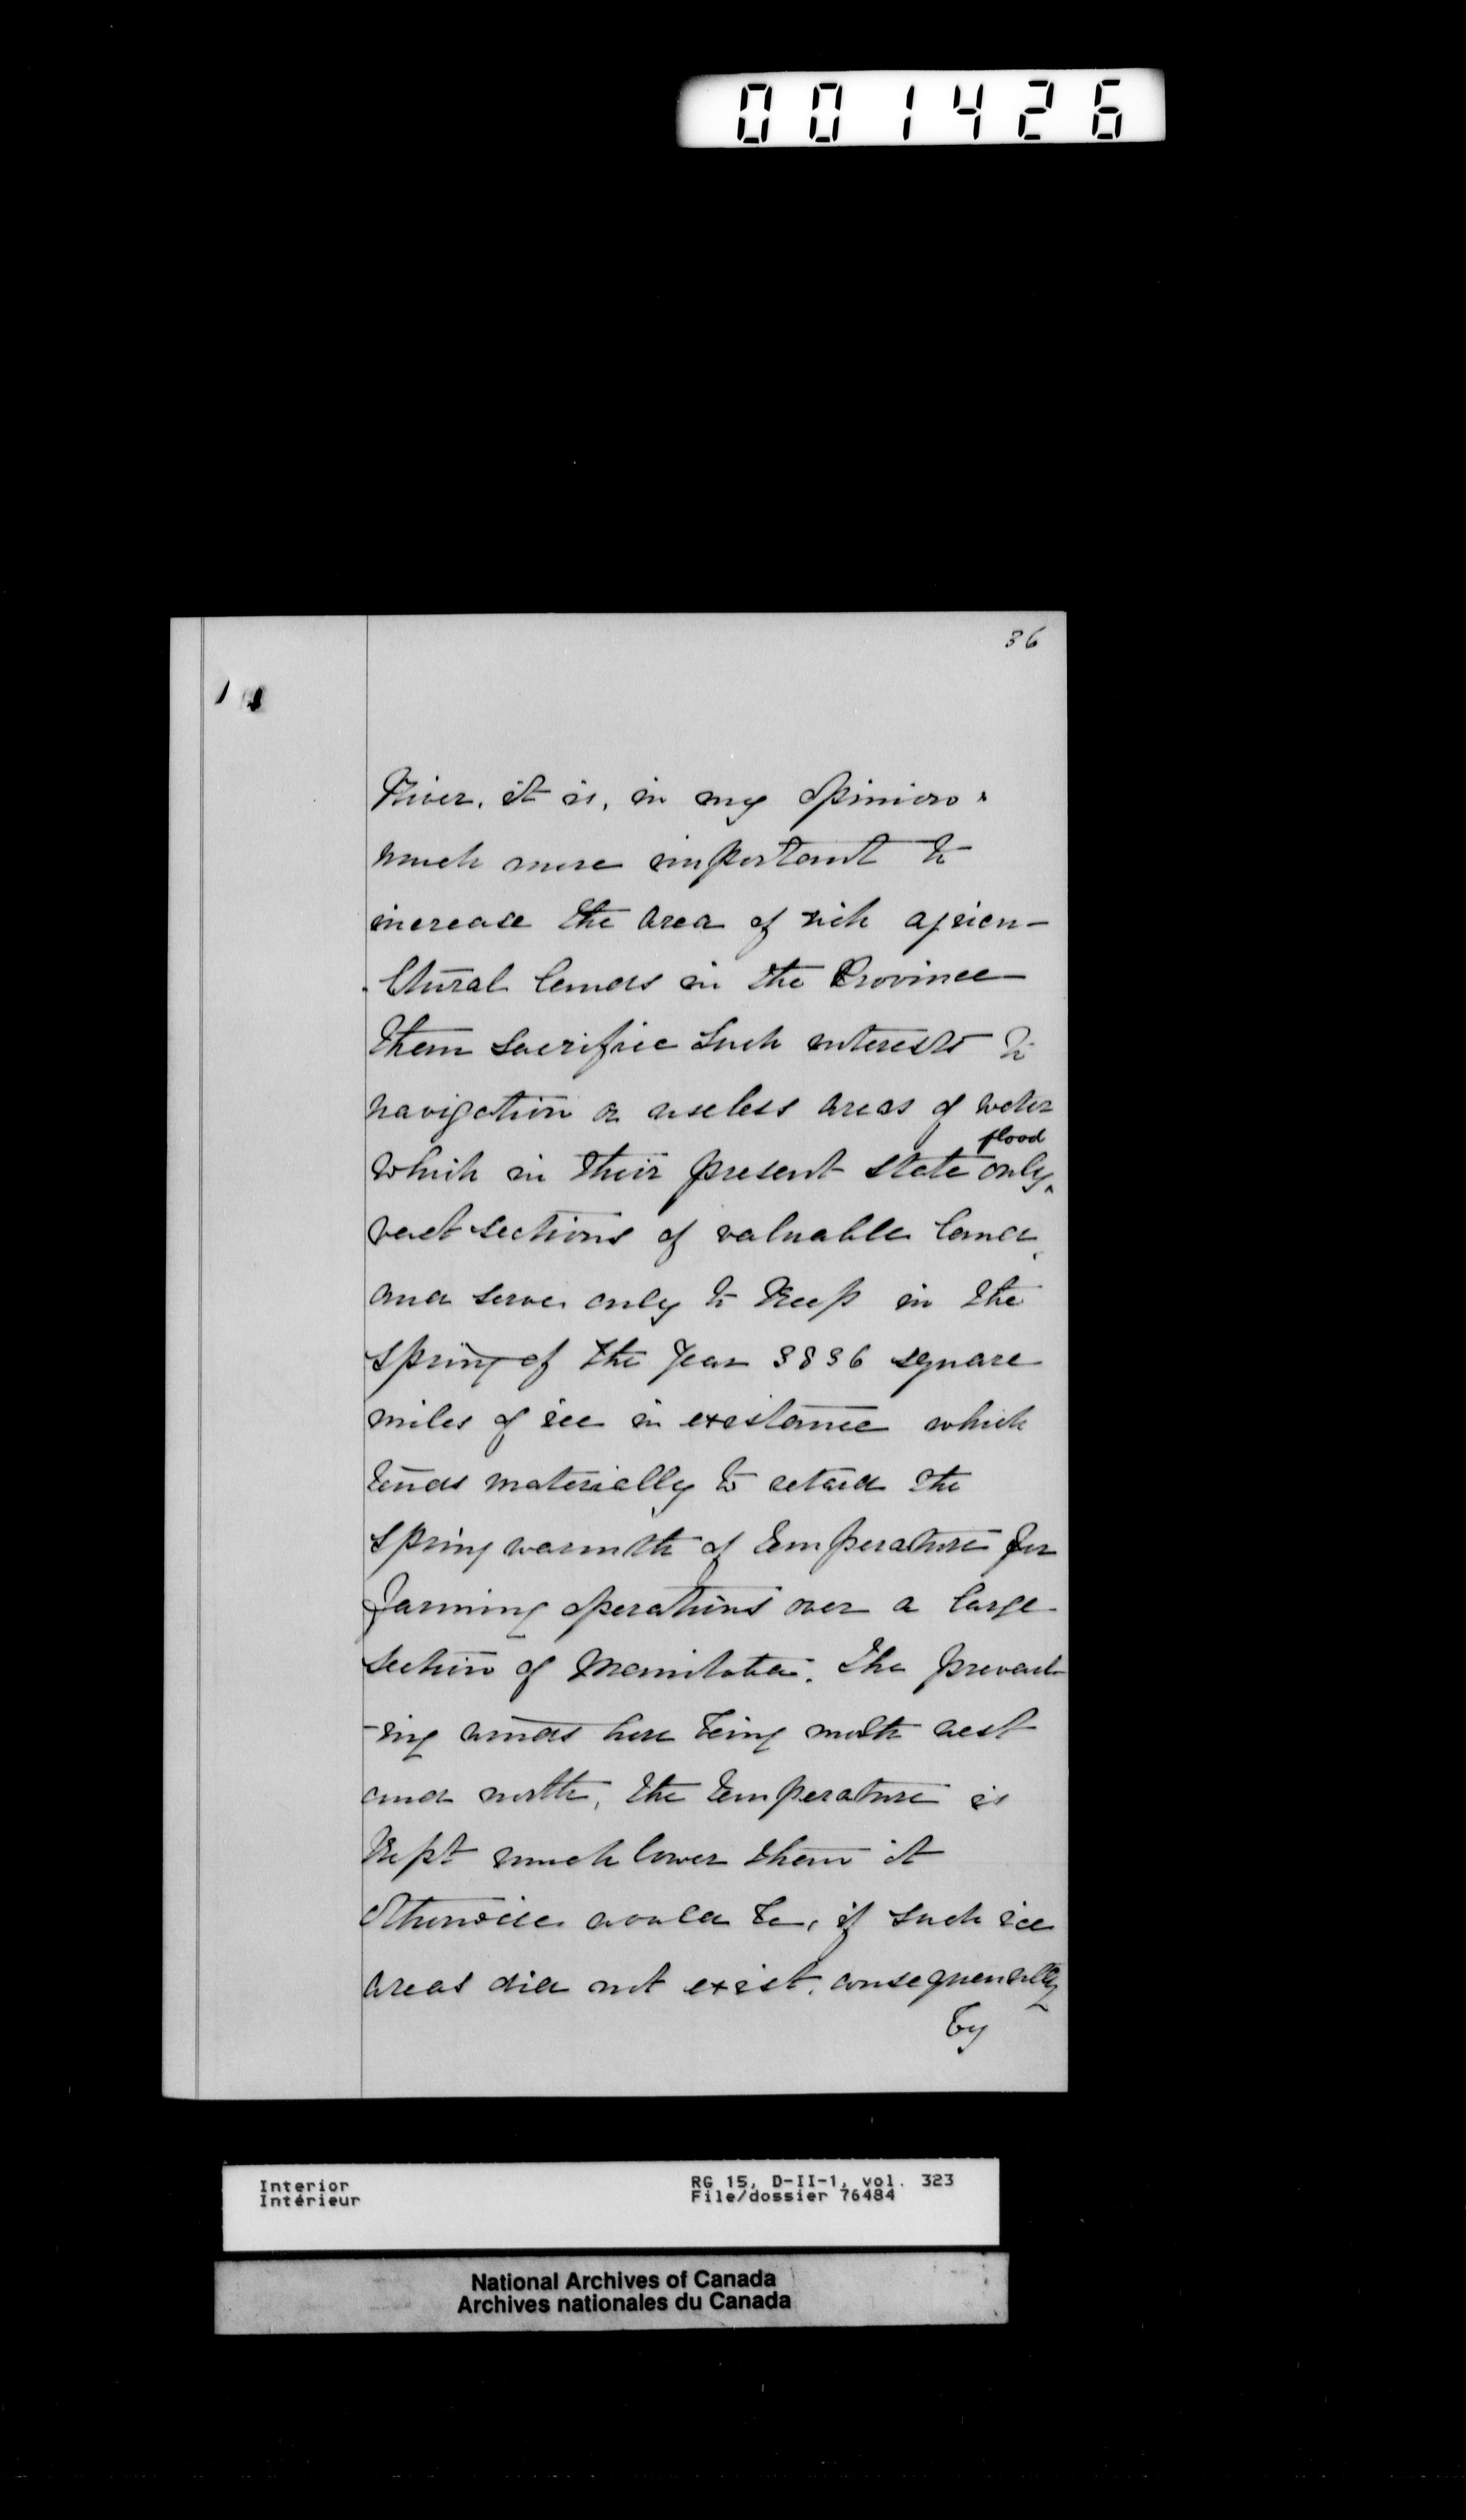 001426
36
River, it is, in my opinion,
much more important to
increase the area of rich agricu-
ltural lands in the Province
than sacrifice such interests to
navigation or useless areas of water
flood
which in their present state only
vast sections of valuable land,
and serve only to keep in the
spring of the year 3836 square
miles of ice in existance which
tends materially to retard the
spring warmth of temperature for
farming operations over a large
section of Manitoba. The prevail-
-ing winds here being north west
and north, the temperature is
kept much lower than it
otherwise would be, if such ice
areas did not exist, consequently
by
Interior
Intérieur
RG 15, D-II-1, vol. 323
File/dossier 76484
National Archives of Canada
Archives nationales du Canada